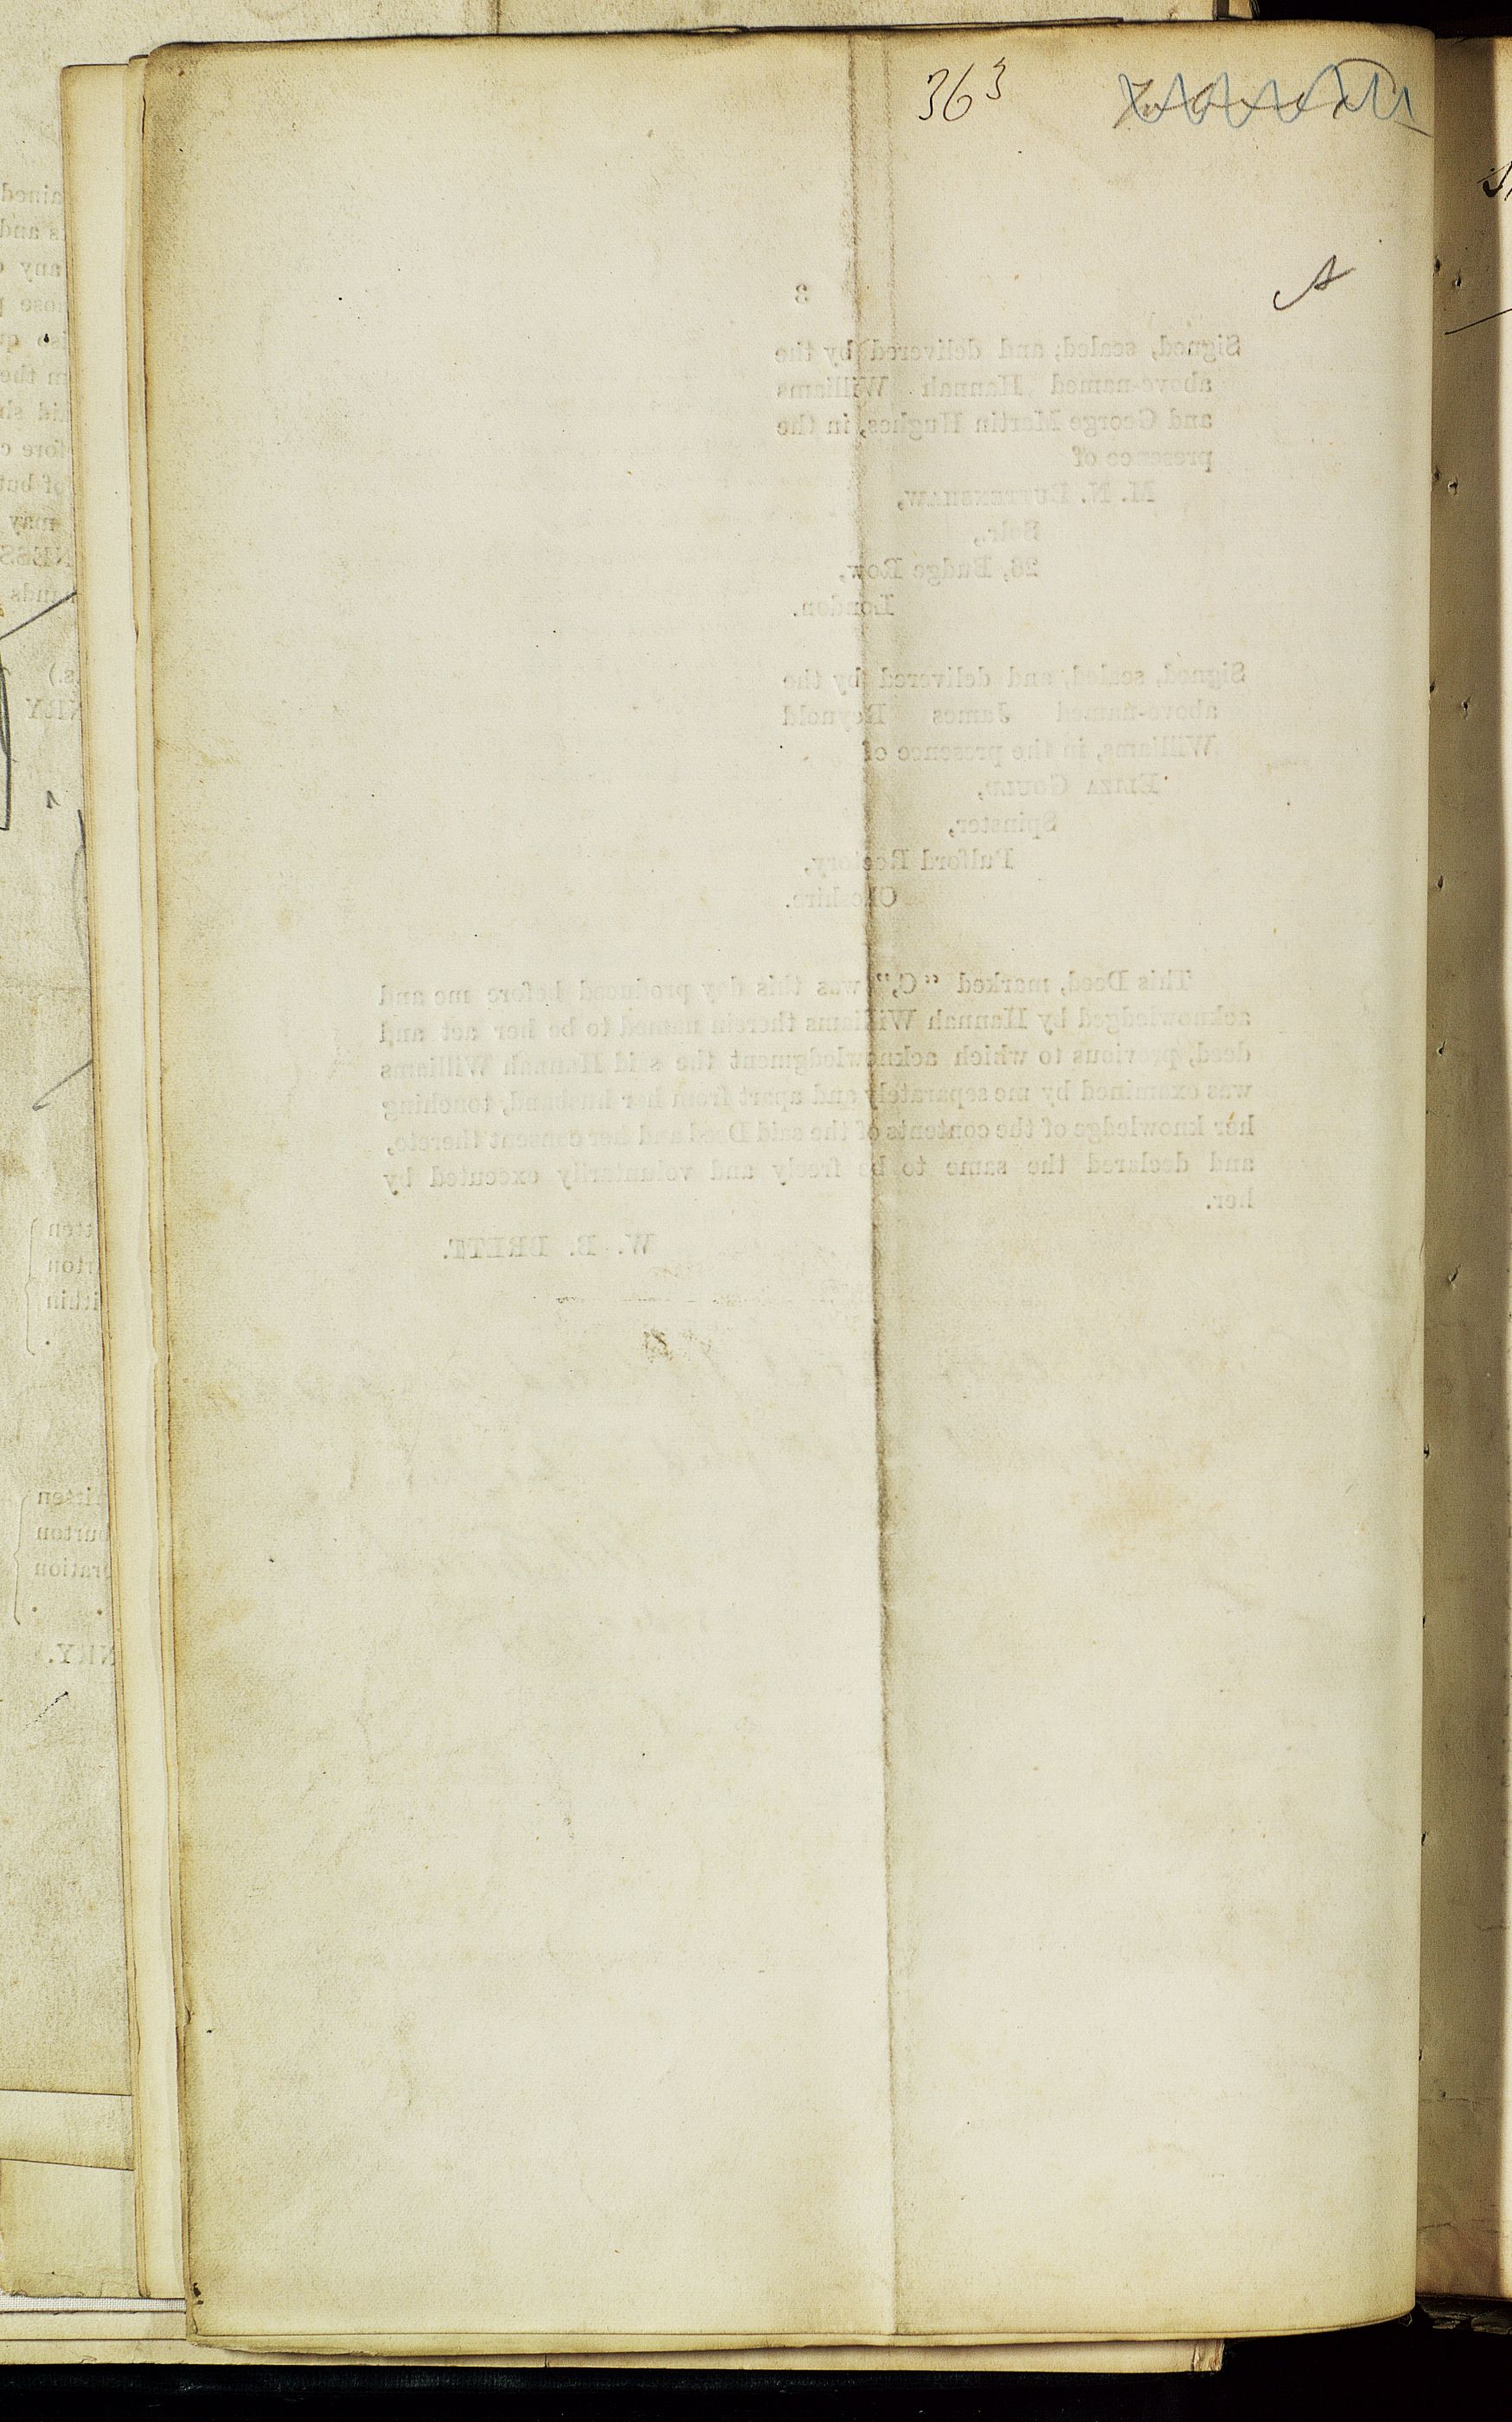 363
A
3
Signed, sealed, and delivered by the
above-named Hannah Williams
and George Martin Hughes, in the
presence of
M. N. BUTTENSHAW,
Solr.,
28, Budge Row,
London.
Signed, sealed, and delivered by the
above-named James Reynold
Williams, in the presence of
ELIZA GOULD,
Spinster,
Pulford Rectory,
Cheshire.
This Deed, marked “C,” was this day produced before me and
acknowledged by Hannah Williams therein named to be her act and
deed, previous to which acknowledgment the said Hannah Williams
was examined by me separately and apart from her husband, touching
her knowledge of the contents of the said Deed and her consent thereto,
and declared the same to be freely and voluntarily executed by
her.
W. B. BRETT.